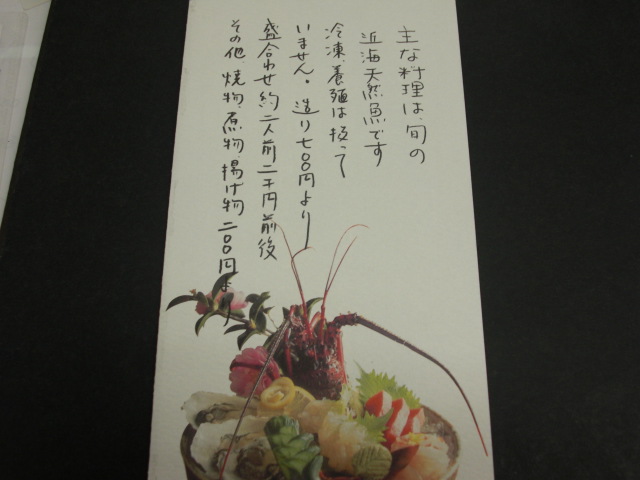 主な料理は、旬の
近海天然魚です
冷凍、養殖は扱って
いません。造り七〇円より
盛合わせ約二人前二千円前後
その他 焼物、煮物、揚げ物二〇〇円より